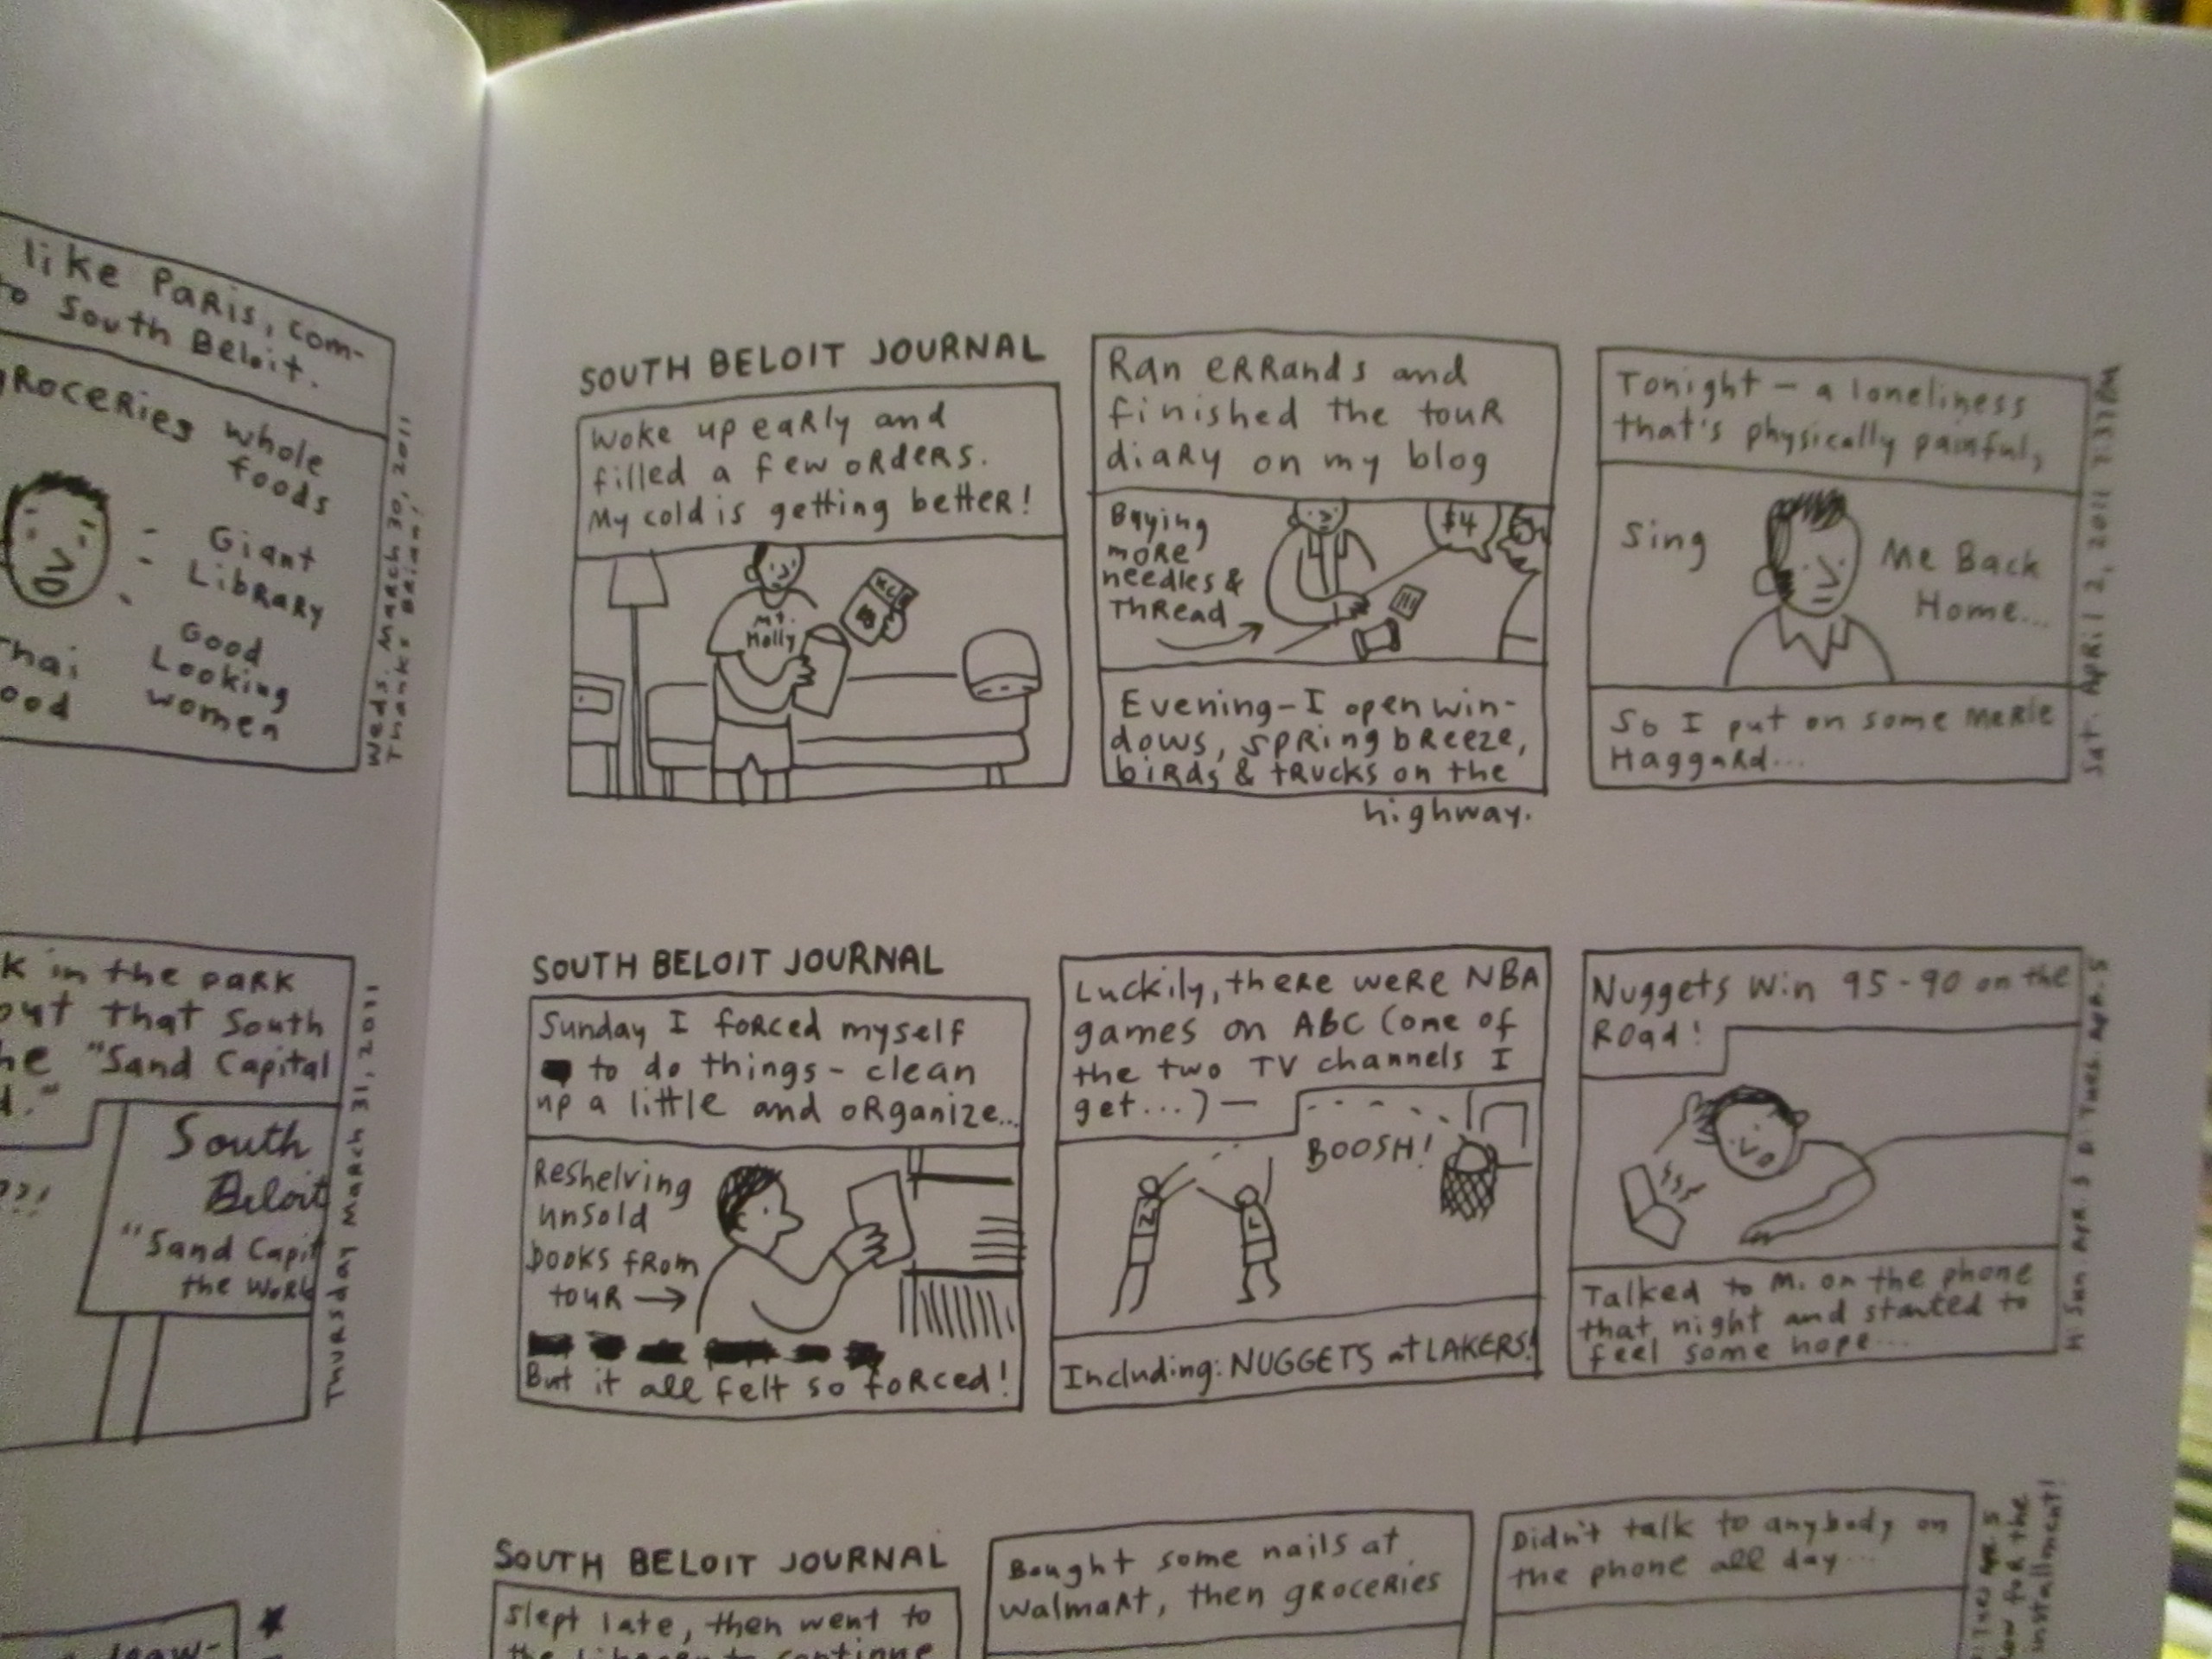 like Paris, com-
to South Beloit.
groceries whole
foods
Giant
Library
Good
Looking
women
Thai
ood
Weds. March 30, 2011
Thanks Brian!
k in the park
out that South
he "Sand Capital
d."
South
Beloit
"Sand Capit
the Worl
??!
Thursday March 31, 2011
SOUTH BELOIT JOURNAL
Woke up early and
filled a few orders.
My cold is getting better!
Mt.
Holly
Ran errands and
finished the tour
diary on my blog
Buying
more
needles &
Thread
$4
Evening—I open win-
dows, spring breeze,
birds & trucks on the
highway.
Tonight — a loneliness
that's physically painful,
Sing
Me Back
Home...
So I put on some Merle
Haggard...
Sat. April 2, 2011 7:37PM
SOUTH BELOIT JOURNAL
Sunday I forced myself
to do things - clean
up a little and organize...
Reshelving
unsold
books from
tour
But it all felt so forced!
Luckily, there were NBA
games on ABC (one of
the two TV channels I
get...) —
BOOSH!
Including: NUGGETS at LAKERS!
Nuggets Win 95-90 on the
Road!
Talked to M. on the phone
that night and started to
feel some hope...
H: Sun Apr. 3 D: Tues. Apr. 5
SOUTH BELOIT JOURNAL
Slept late, then went to
Bought some nails at
Walmart, then groceries
Didn't talk to anybody on
the phone all day...
Tues Apr. 5
for the
installment!